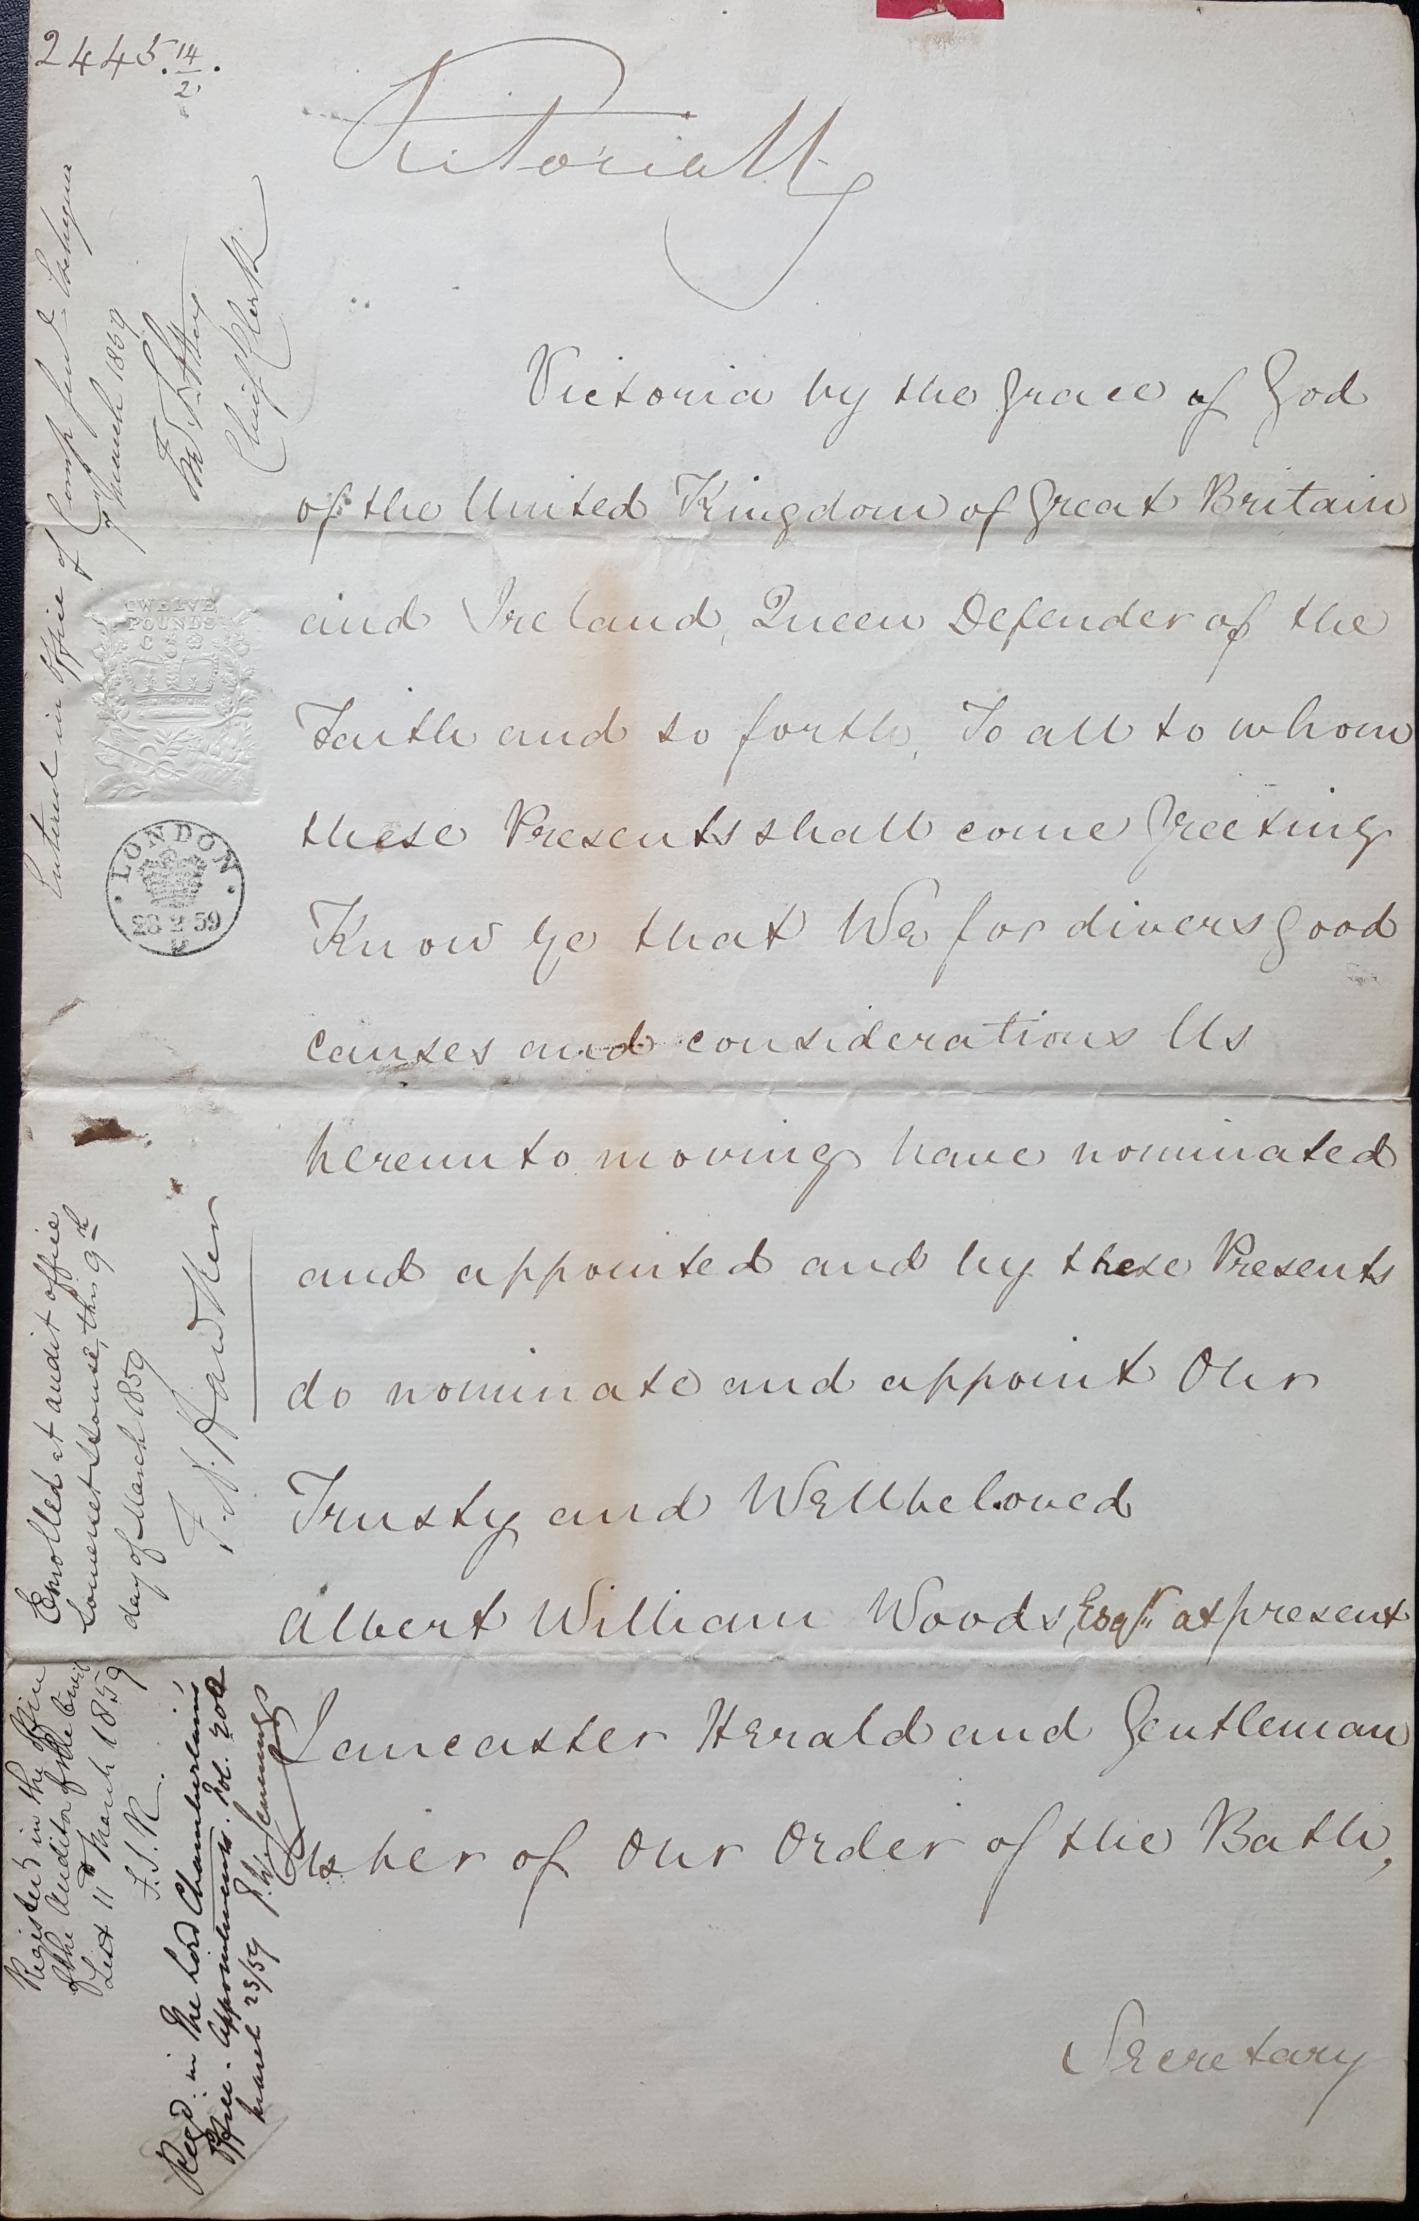 2445. 14/2.
Victoria R
Victoria by the Grace of God
of the United Kingdom of Great Britain
and Ireland, Queen Defender of the
Faith and so forth, To all to whom
these Presents shall come Greeting
Know Ye that We for divers good
causes and considerations Us
hereunto moving have nominated
and appointed and by these Presents
do nominate and appoint Our
Trusty and Wellbeloved
Albert William Woods, Esqr. at present
Lancaster Herald and Gentleman
Usher of Our Order of the Bath,
Secretary
Entered in Office of
March 1859
Chief Clerk
TWELVE
POUNDS
LONDON
28 2 59
Enrolled at audit office
Somerset House, this 9th
day of March 1859
F. S. Hawker
Registered in the Office
of the Auditor of the Civil
List 11th March 1859
F.S.R.
Regd. in the Lord Chamberlain's
Office - Appointments. Fol. 202
March 23/59 J. W. Jennings